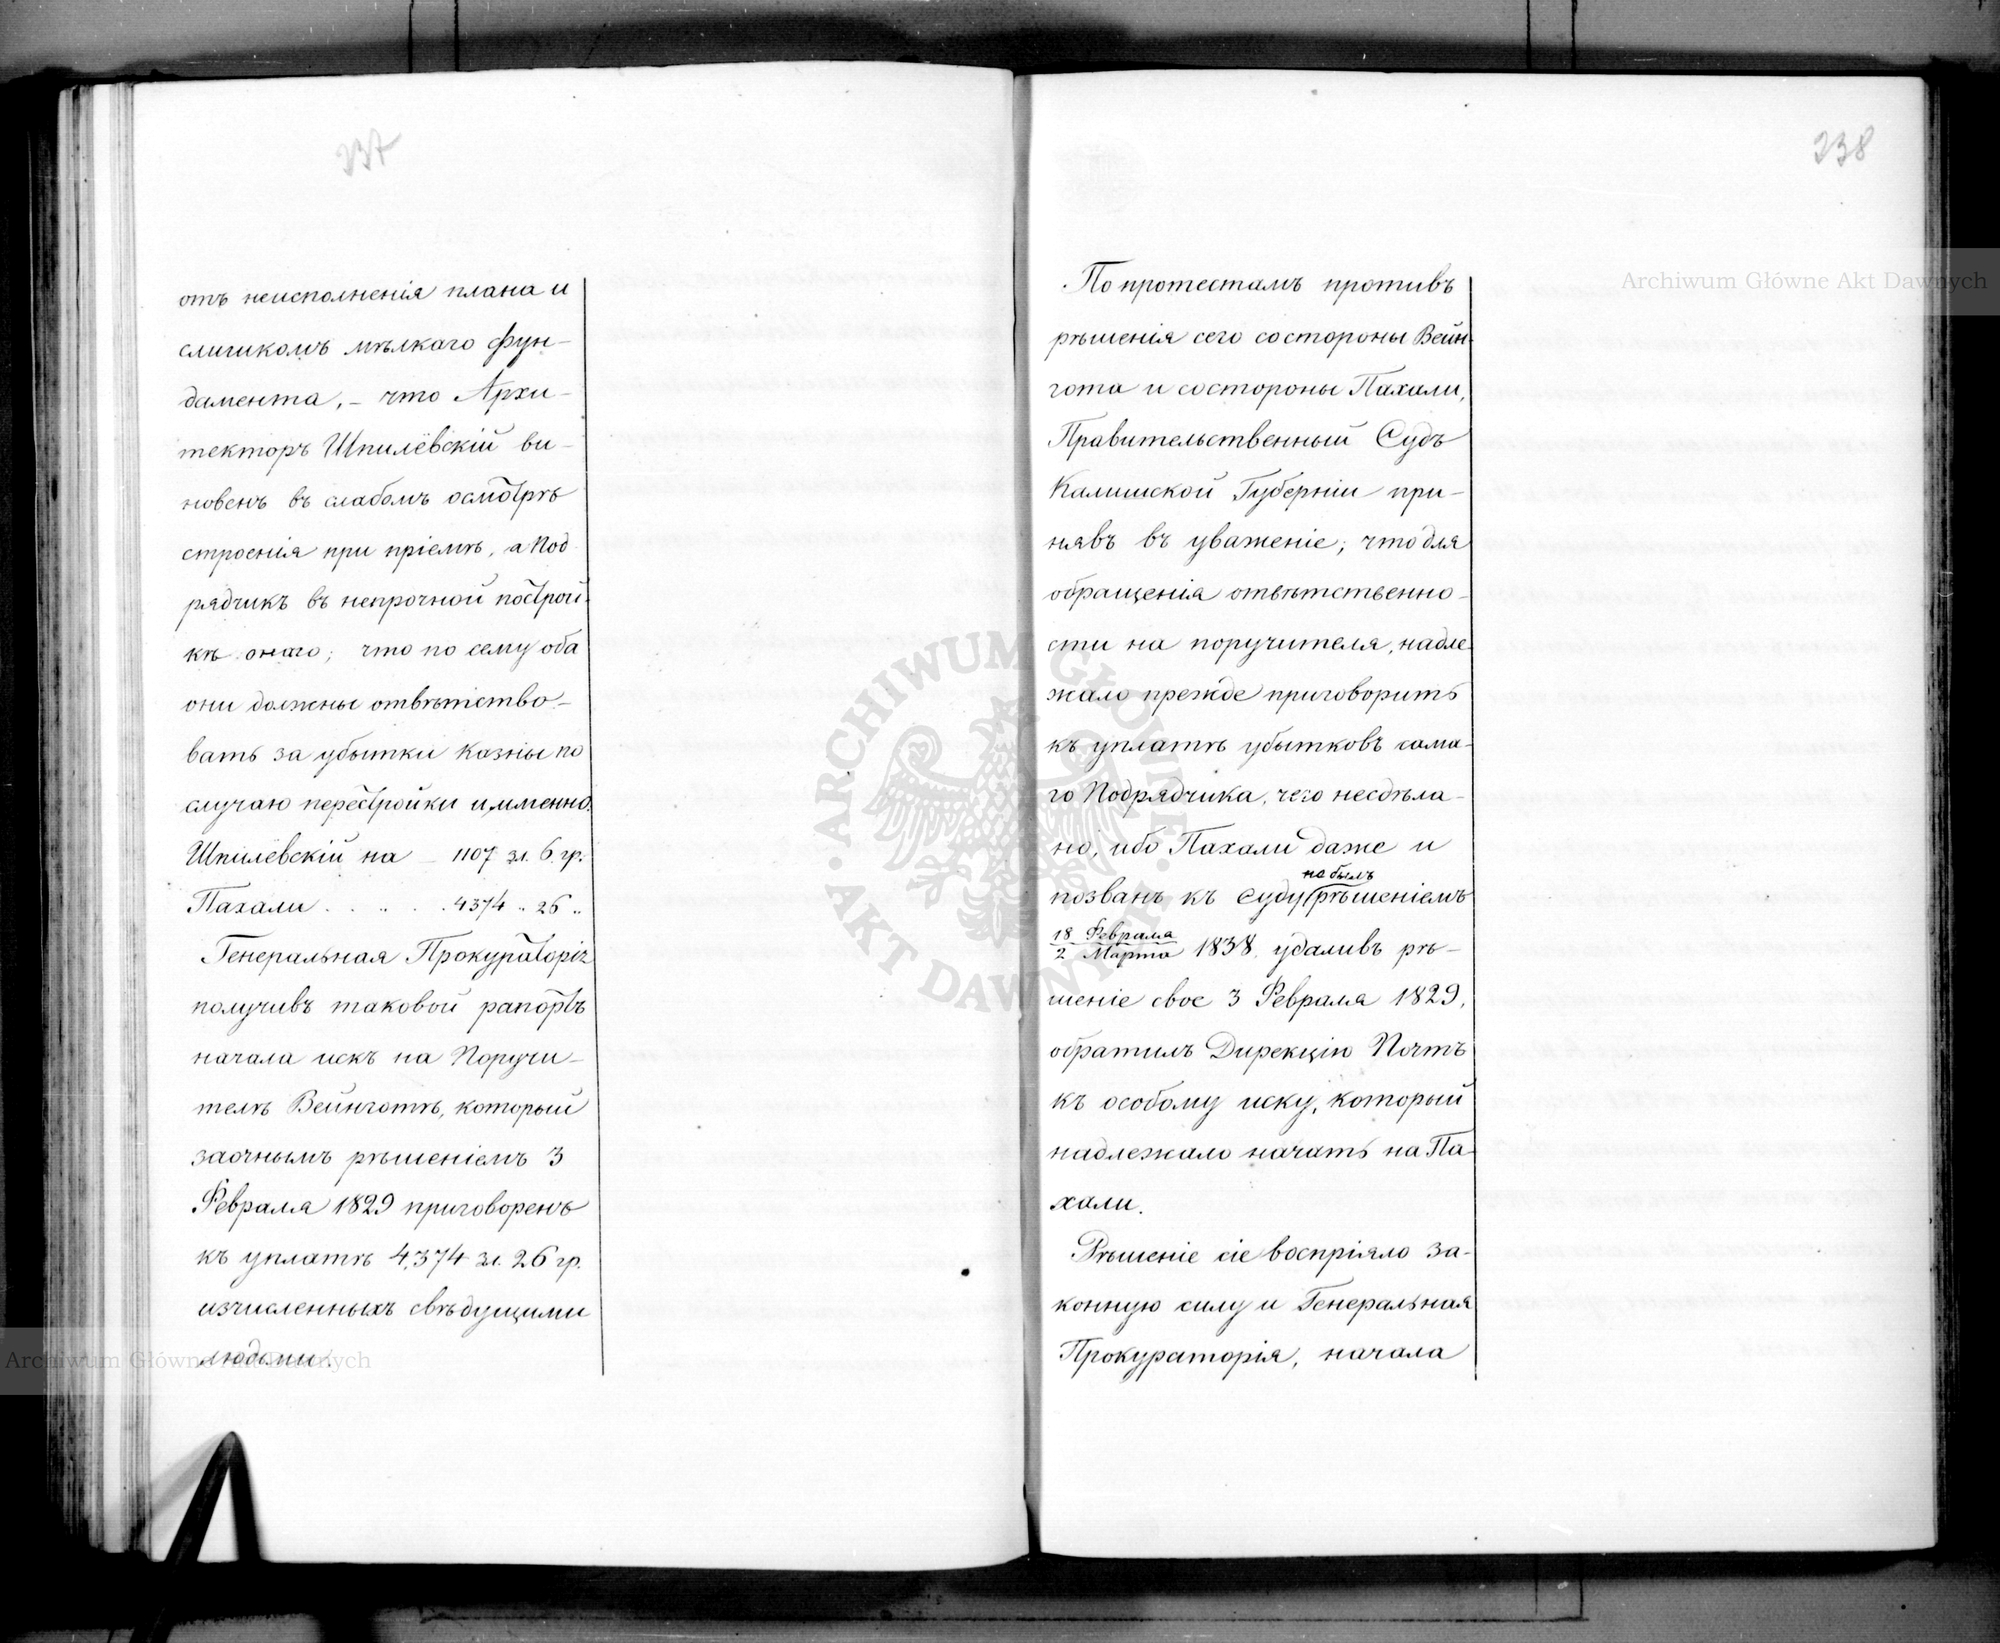 237
отъ неисполненія плана и
слишкомъ мѣлкаго фун-
дамента, - что Архи-
текторъ Шпилёвскій ви-
новенъ въ слабомъ осмотрѣ
строенія при пріемѣ, а Под
рядчикъ въ непрочной построй-
кѣ онаго; что по сему оба
они должны отвѣтство-
вать за убытки Казны по
случаю перестройки и именно:
Шпилёвскій на - 1107 зл. 6 гр.
Пахали . . . . . 4374 " 26 "
Генеральная Прокураторія
получивъ таковой рапортъ
начала искъ на Поручи-
телѣ Вейнготѣ, который
заочнымъ рѣшеніемъ 3
Февраля 1829 приговоренъ
къ уплатѣ 4,374 зл. 26 гр.
изчисленныхъ свѣдущими
людьми.
238
По протестамъ противъ
рѣшенія сего состороны Вейн-
гота и состороны Пахали,
Правительственный Судъ
Калишской Губерніи при-
нявъ въ уваженіе; что для
обращенія отвѣтственно-
сти на поручителя, надле
жало прежде приговорить
къ уплатѣ убытковъ сама-
го Подрядчика, чего несдѣла-
но, ибо Пахали даже и
не былъ
позванъ къ суду, рѣшеніемъ
18 Февраля
2 Марта 1838. удаливъ рѣ-
шеніе свое 3 Февраля 1829,
обратилъ Дирекцію Почтъ
къ особому иску, который
надлежало начать на Па-
хали.
Рѣшеніе сіе воспріяло за-
конную силу и Генеральная
Прокураторія, начала
Archiwum Główne Akt Dawnych
Archiwum Główne Akt Dawnych
ARCHIWUM GŁÓWNE AKT DAWNYCH